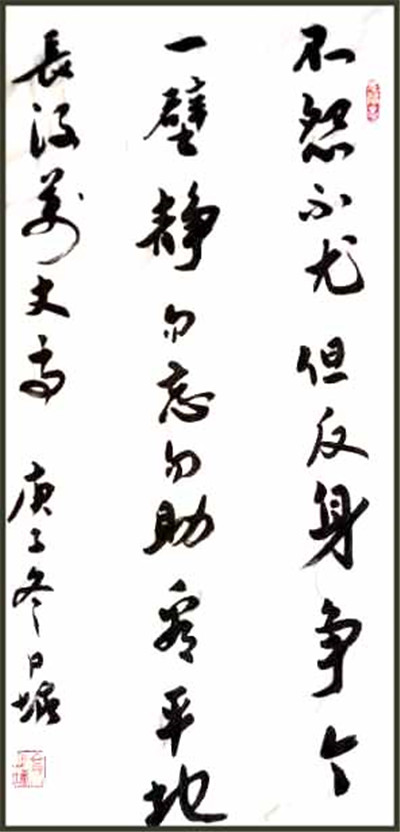 不怨不尤但反身争个
一壁静勿忘勿助看平地
長得萬丈高 庚子冬日